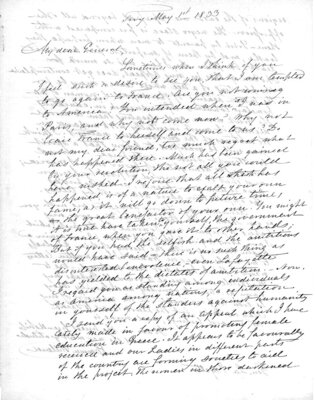 Troy May 1st 1833
My dear General,
Sometimes when I think of you
I feel such a desire to see you that I am tempted
to go again to France. Are you not coming
to America. You intended when I was in
Paris, and why not come now? Why not
leave France to herself and come to us? Do
not my dear friend, too much regret what
has happened there. Much has been gained
by your revolution, tho not all you would
have wished. I rejoice that all which has
happened is of a nature to exalt your own
fame, as it will go down to future time,
as the great benefactor of yours one. You might
it is true have taken yourself, the government
of France, when you gave it to other hands;
But if you had, the selfish and the ambitious
would have said – there is no such thing as
disinterested benevolence – even Lafayette
has yielded to the dictates of ambition. Now,
I regard you as standing among individuals
as America among nations, a refutation
in yourself of the slanders against humanity
I send you a copy of an appeal which I have
lately made in favour of promoting female
education in Greece. It appears to be favourably
received and our Ladies in different parts
of the country are forming societies to aid
in the project, the women in those darkened